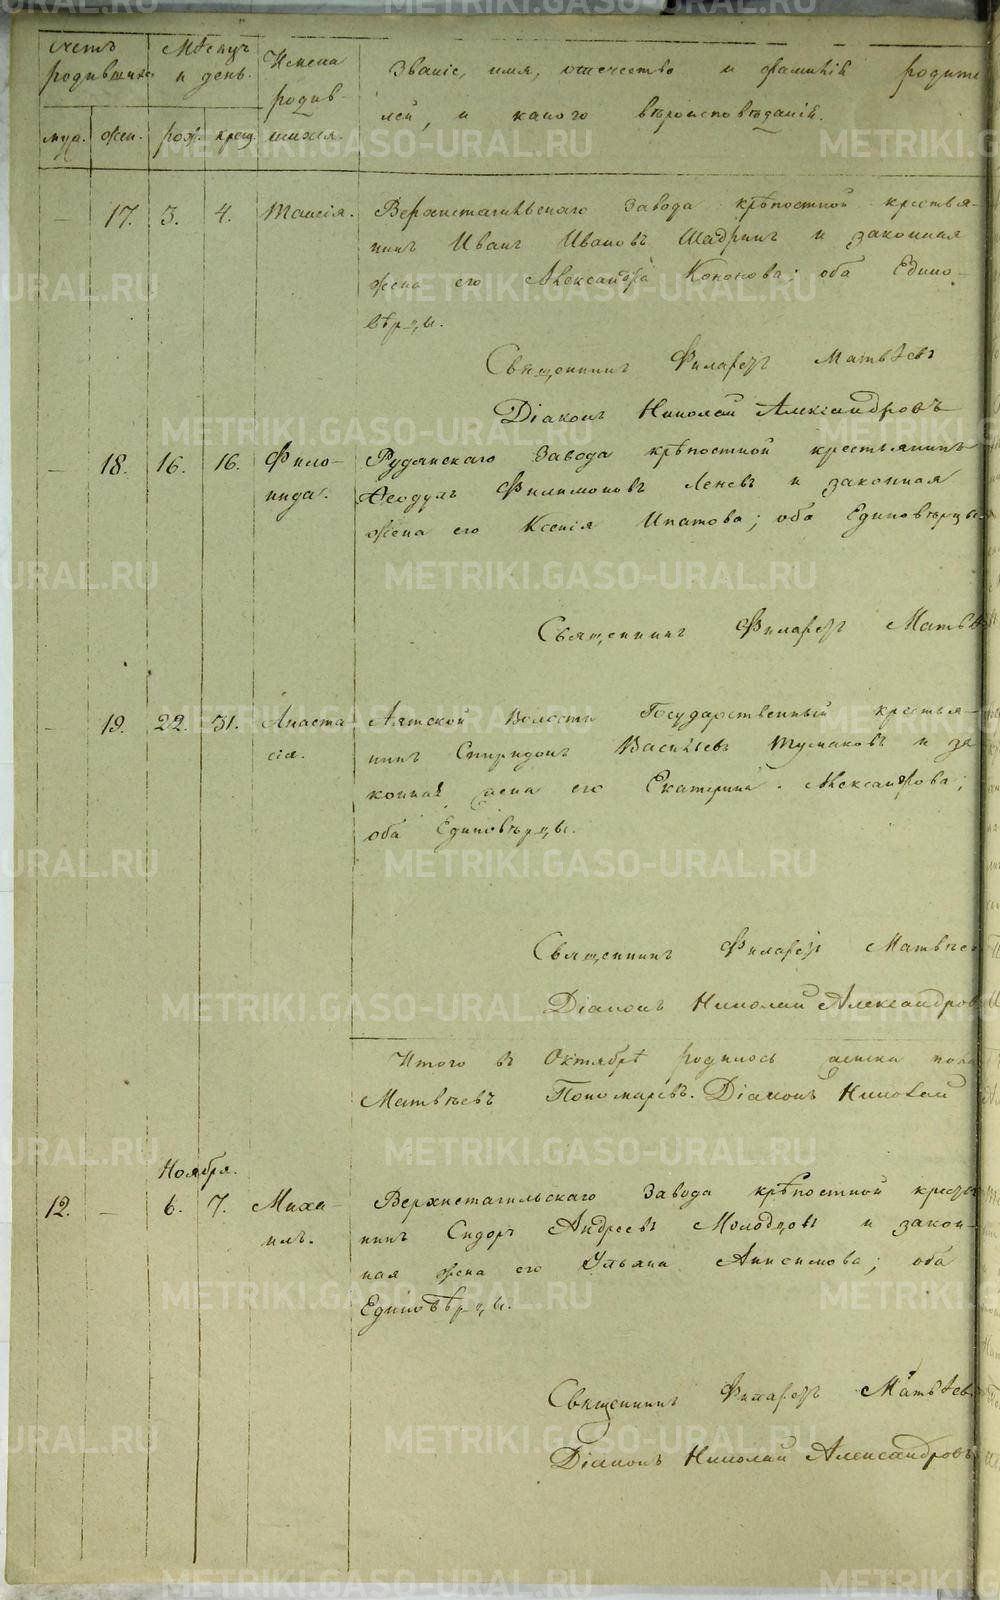 Счетъ родившихся
Мѣсяцъ и день.
Имена родив-
шихся.
муж. жен. рож. крещ.
Званіе, имя, отечество и фамиліи родите
лей, и какого вѣроисповѣданія.
— 17. 3. 4. Таисія.
Верхнетагильскаго Завода крѣпостной крестья-
нинъ Иванъ Ивановъ Шадринъ и законная
жена его Александра Кононова; оба Едино-
вѣрцы.
Священникъ Филаретъ Матвѣевъ
Діаконъ Николай Александровъ
— 18. 16. 16. Фило-
нида.
Рудянскаго Завода крѣпостной крестьянинъ
Ѳеодулъ Филимоновъ Леневъ и законная
жена его Ксенія Ипатова; оба Единовѣрцы.
Священникъ Филаретъ Матвѣ
— 19. 22. 31. Анаста
сія.
Аятской Волости Государственный крестья-
нинъ Спиридонъ Васильевъ Тумаковъ и за
конная жена его Екатерина Александрова;
оба Единовѣрцы.
Священникъ Филаретъ Матвѣев
Діаконъ Николай Александров
Итого въ Октябрѣ родилось женска пола
Матвѣевъ Пономаревъ. Діаконъ Николай
Ноября.
12. — 6. 7. Миха-
илъ.
Верхнетагильскаго Завода крѣпостной крестья
нинъ Сидоръ Андреевъ Молодцовъ и закон-
ная жена его Ульяна Анисимова; оба
Единовѣрцы.
Священникъ Филаретъ Матвѣев
Діаконъ Николай Александровъ
METRIKI.GASO-URAL.RU